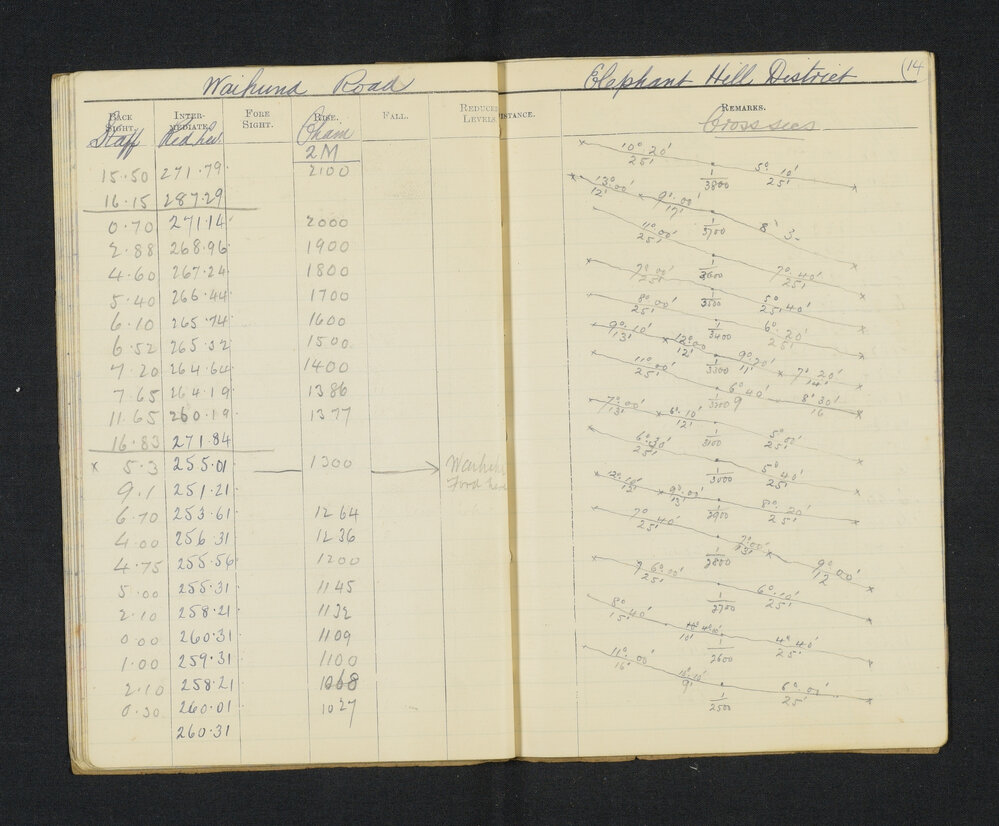 Waihuna Road
Elephant Hill District (14
BACK SIGHT. INTER-MEDIATE. FORE SIGHT. RISE. FALL. REDUCED LEVELS DISTANCE. REMARKS.
Staff Red Lev Chain Cross secs
2M
15.50 271.79 2100
16.15 287.29
0.70 271.14 2000
2.88 268.96 1900
4.60 267.24 1800
5.40 266.44 1700
6.10 265.74 1600
6.52 265.32 1500
7.20 264.64 1400
7.65 264.19 1386
11.65 260.19 1377
16.83 271.84
x 5.3 255.01 1300
9.1 251.21 Ford
6.70 253.61 1264
4.00 256.31 1236
4.75 255.56 1200
5.00 255.31 1145
2.10 258.21 1132
0.00 260.31 1109
1.00 259.31 1100
2.10 258.21 1068
0.30 260.01 1027
260.31
10° 20' 5° 10'
25' 1 25'
3800
13° 00' 9° 00' 8° 3-
12' 17' 1
3700
11° 00'
25'
7° 00' 1 7° 40'
25' 3600 25'
8° 00' 1 5° 40'
25' 3500 25'
9° 10' 12° 00 1 6° 20'
13' 12' 3400 25'
11° 00' 1 9° 20' 7° 20'
25' 3300 11' 14'
7° 00' 6° 10' 1 6° 40 8° 30'
13' 12' 3200 9 16
6° 30' 1 5° 00'
25' 3100 25'
12° 10' 9° 00' 1 5° 40'
13' 13' 3000 25'
7° 40' 1 8° 20'
25' 2900 25'
1 7° 00' 9° 00'
2800 13' 12
6° 00' 1 6° 10'
25' 2700 25'
8° 40' 4° 40'
15' 10' 1 25'
2600
11° 00' 6° 00'
16' 9' 1 25'
2500